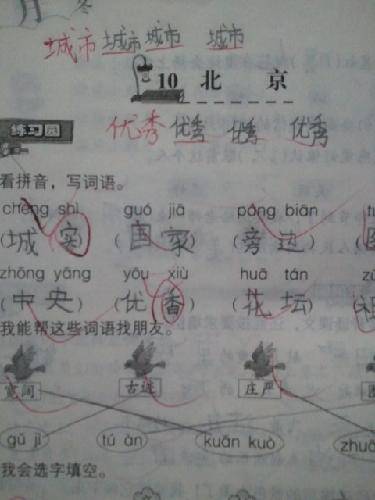 城市 城市 城市 城市
10 北 京
优秀 优秀 优秀 优秀
练习园
看拼音,写词语。
chéng shì guó jiā páng biān
(城实)(国家)(旁边)
zhōng yāng yōu xiù huā tán
(中央)(优香)(花坛)
我能帮这些词语找朋友。
宽阔 古迹 庄严
gǔ jì tú àn kuān kuò
我会选字填空。